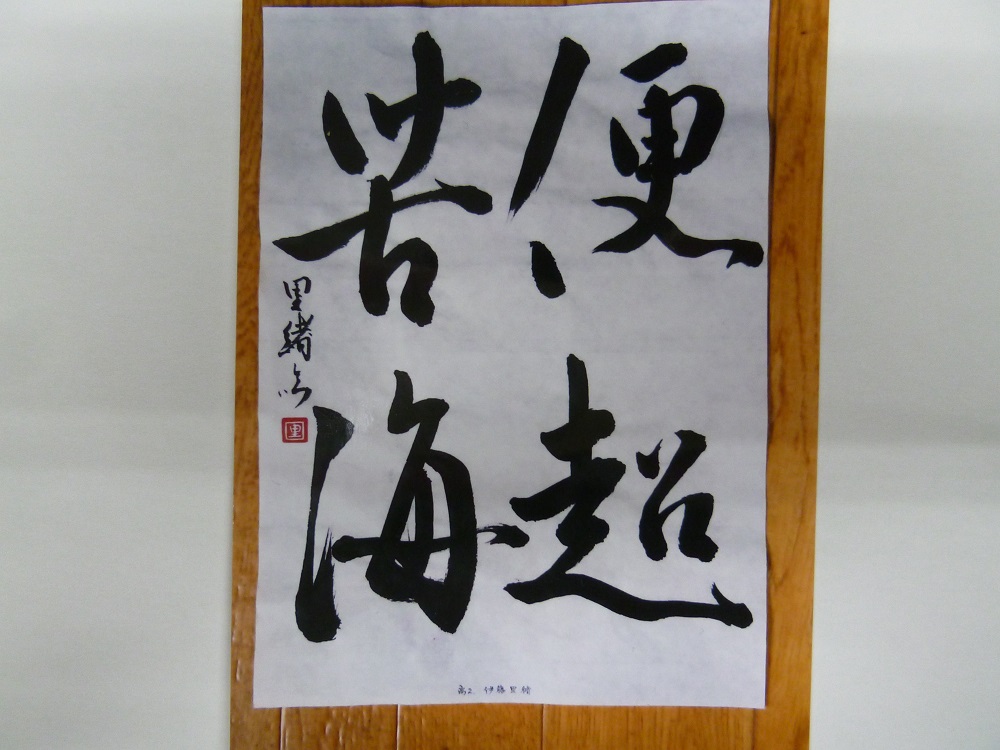 便超
苦海
里緒臨
里
高2 伊藤里緒